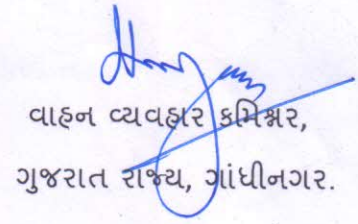 વાહન વ્યવહાર કમિશ્નર,
ગુજરાત રાજ્ય, ગાંધીનગર.